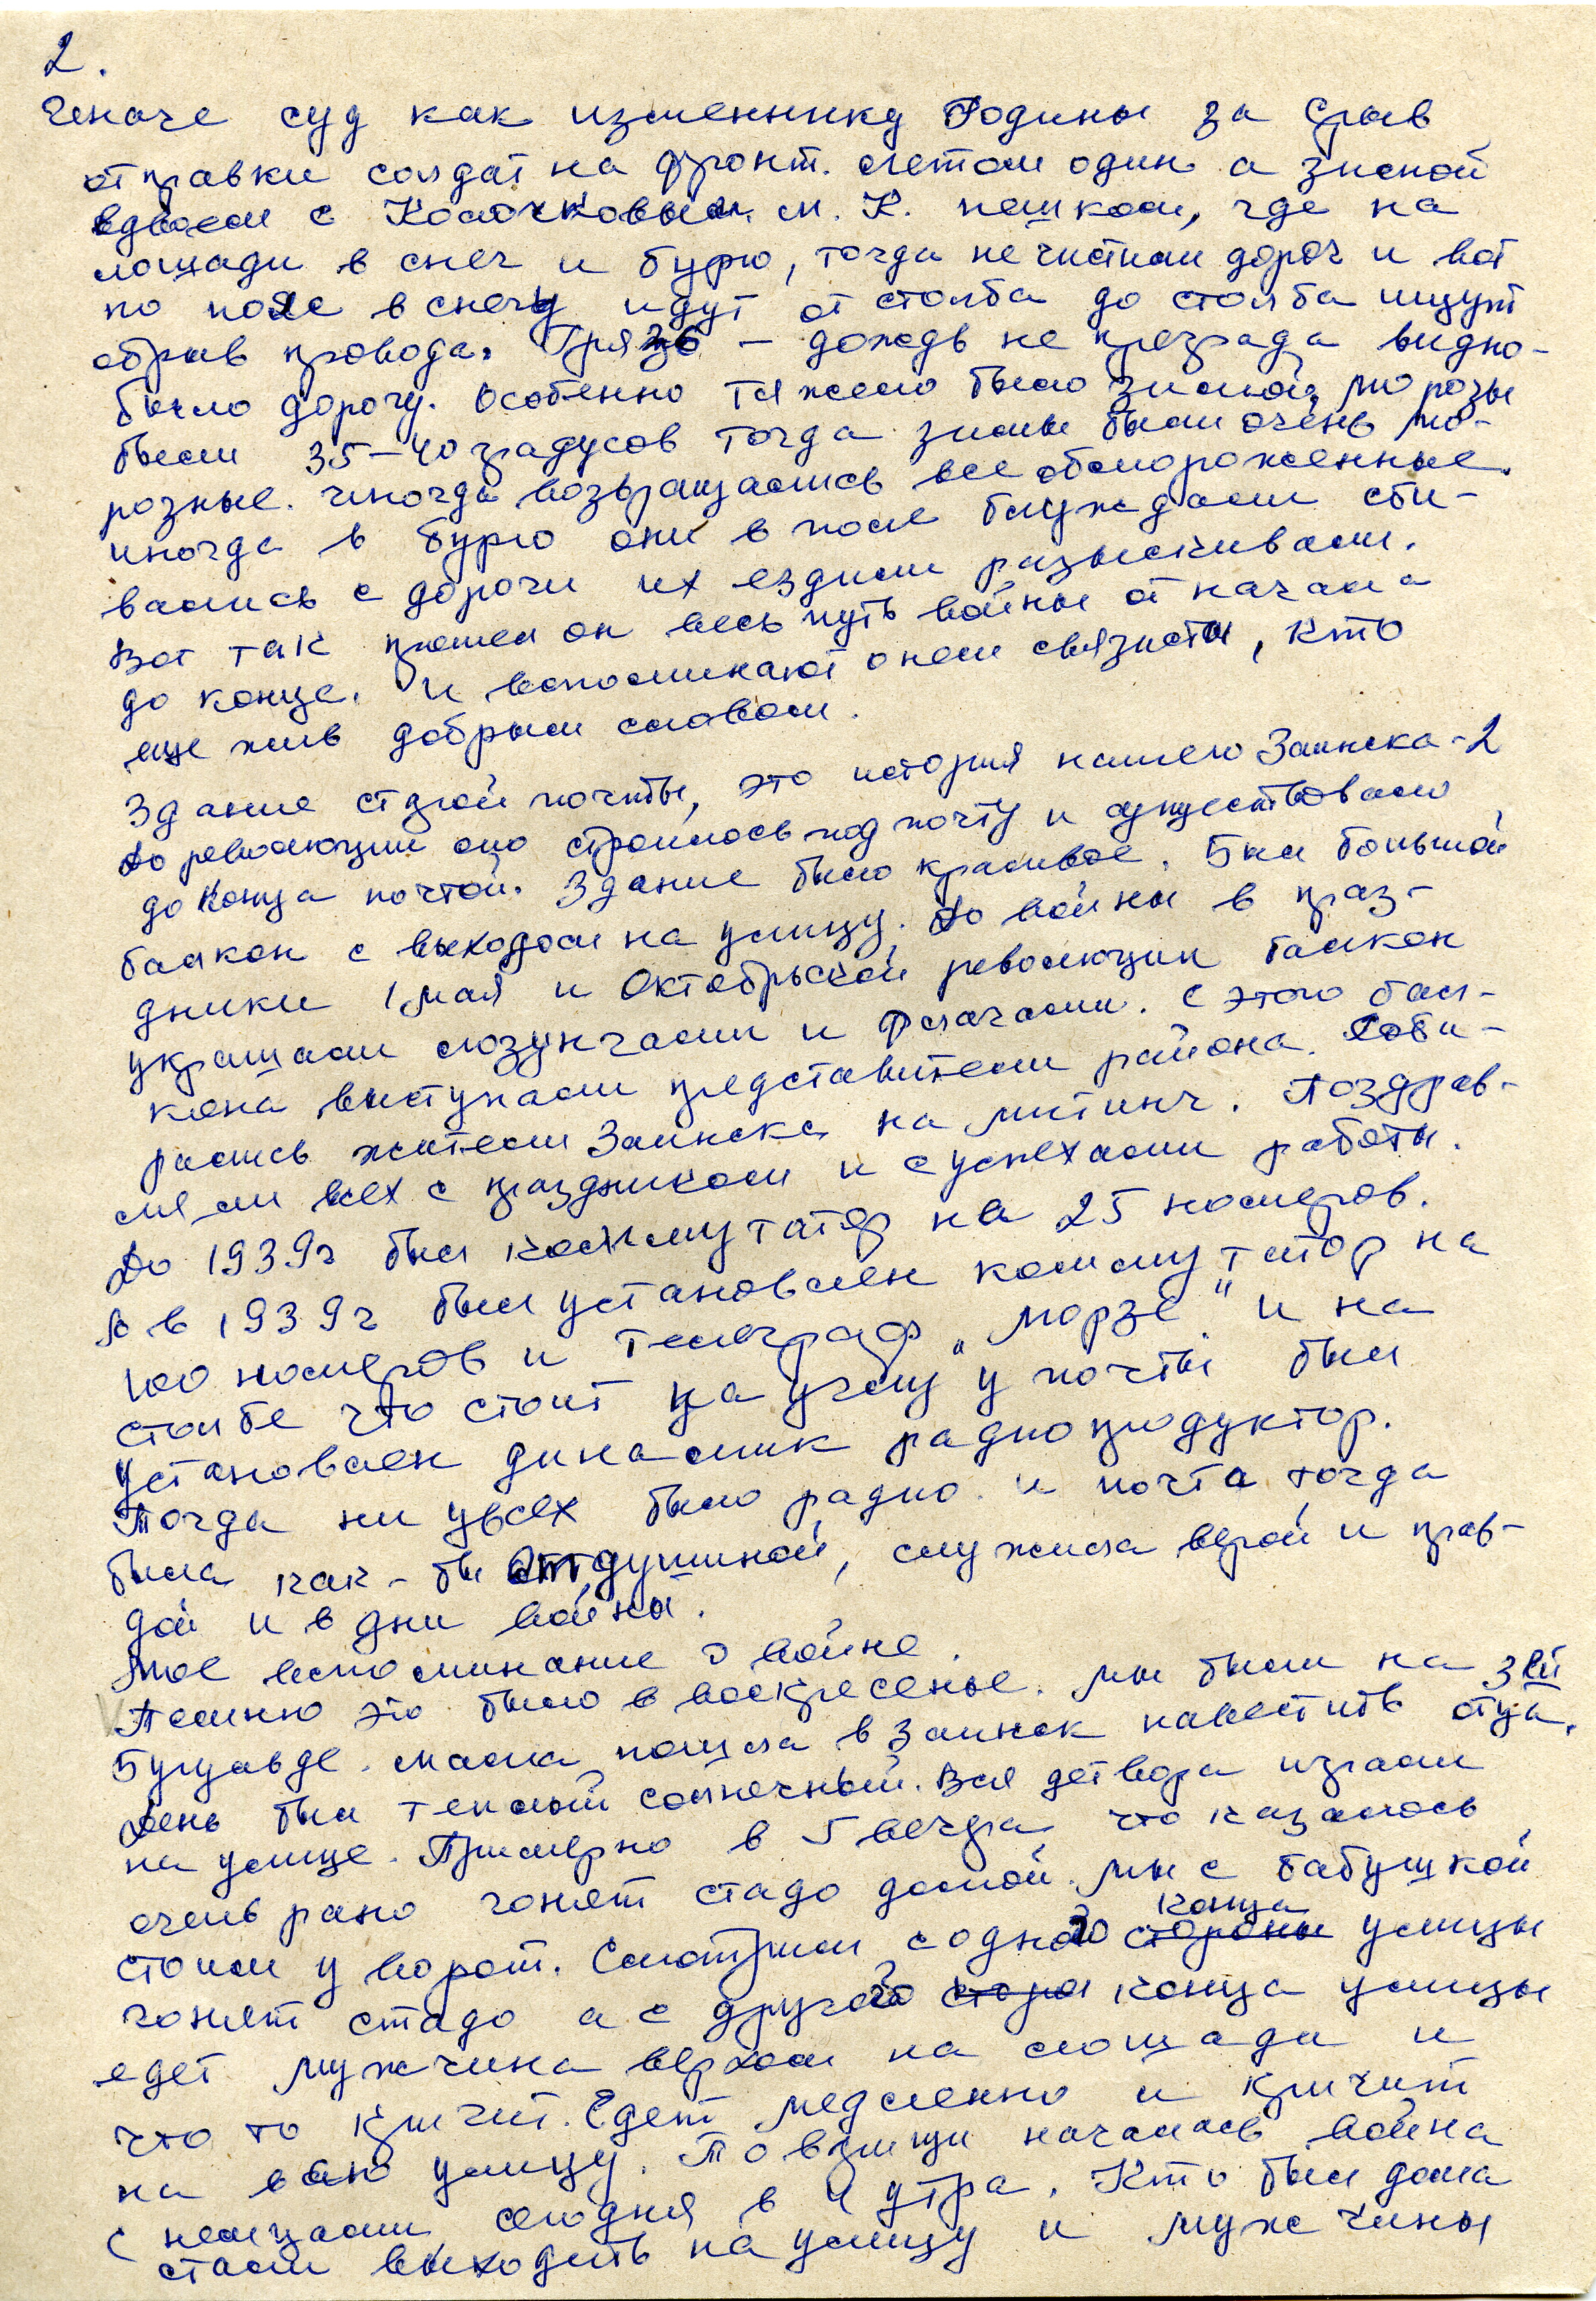 2.
Иначе суд как изменнику Родины за срыв
отправки солдат на фронт. летом один а зимой
вдвоем с Колочковым м. К. пешком, где на
лошади в снег и бурю, тогда не чистили дорог и вот
по поле в снегу идут от столба до столба ищут
обрыв провода. Грязь – дождь не преграда видно-
было дорогу. Особенно тяжело было зимой, морозы
были 35-40 градусов тогда зимы были очень мо-
розные. иногда возвращались все обмороженные.
иногда в бурю они в поле блуждали сби-
вались с дороги их ездили разыскивали.
Вот так прошел он весь путь войны от начала
до конца. И вспоминают о нем связисты, кто
еще жив добрым словом.
Здание старой почты, это история нашего Заинска-2
До революции оно строилось под почту и существовало
до конца почтой. Здание было красивое. Был большой
балкон с выходом на улицу. До войны в праз-
дники 1 мая и Октябрьской революции балкон
украшали лозунгами и флагами. С этого бал-
кона выступали представители района. Соби-
рались жители Заинска на митинг. Поздрав-
ляли всех с праздником и с успехами работы.
До 1939г был коммутатор на 25 номеров.
А в 1939г был установлен коммутатор на
100 номеров и телеграф „Морзе" и на
столбе что стоит на углу у почты был
установлен динамик радиопродуктор.
Тогда ни у всех было радио. и почта тогда
была как-бы отдушиной, служила верой и прав-
дой и в дни войны.
Мое воспоминание о войне.
Помню это было в воскресенье. мы были на 3ей
Бугульде. мама пошла в Заинск навестить отца.
День был теплый солнечный. Вся детвора играли
на улице. Примерно в 5 вечера что казалось
очень рано гонят стадо домой. Мы с бабушкой
стоим у ворот. Смотрим с одного стороны конца улицы
гонят стадо а с другого стора конца улицы
едет мужчина верхом на лошади и
что то кричит. Едет медленно и кричит
на всю улицу. Товарищи началась война
с немцами сегодня в 4 утра. Кто был дома
стали выходить на улицу и мужчины